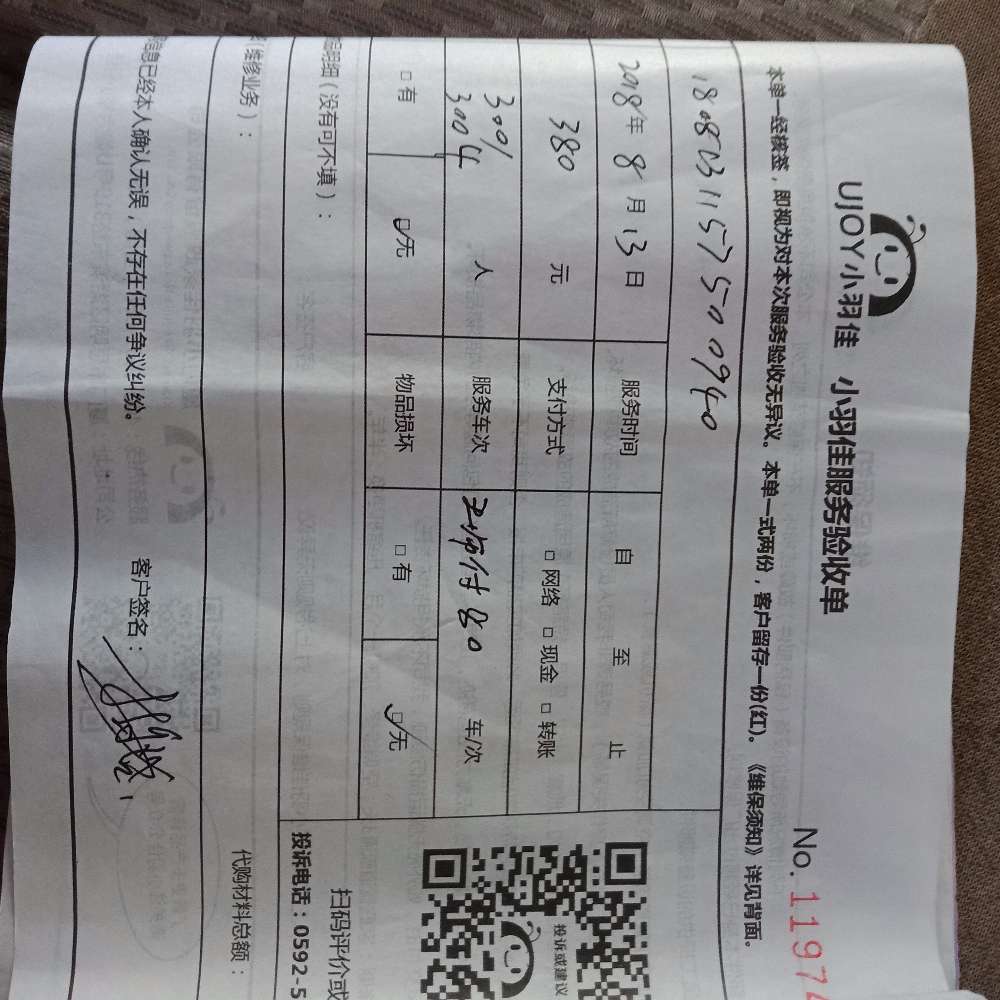 UJOY小羽佳 小羽佳服务验收单
No. 11974
本单一经核签，即视为对本次服务验收无异议。本单一式两份，客户留存一份(红)。《维保须知》详见背面。
180823115750 0940
2018年 8 月 13 日 服务时间 自 至 止
380 元 支付方式 □ 网络 □ 现金 □ 转账
300% 3004 人 服务车次 付 80 车/次
□ 有 ☑无 物品损坏 □ 有 ☑无
明细（没有可不填）：
（维修业务）：
代购材料总额：
信息已经本人确认无误，不存在任何争议纠纷。 客户签名：
投诉或建议
扫码评价或
投诉电话：0592-5